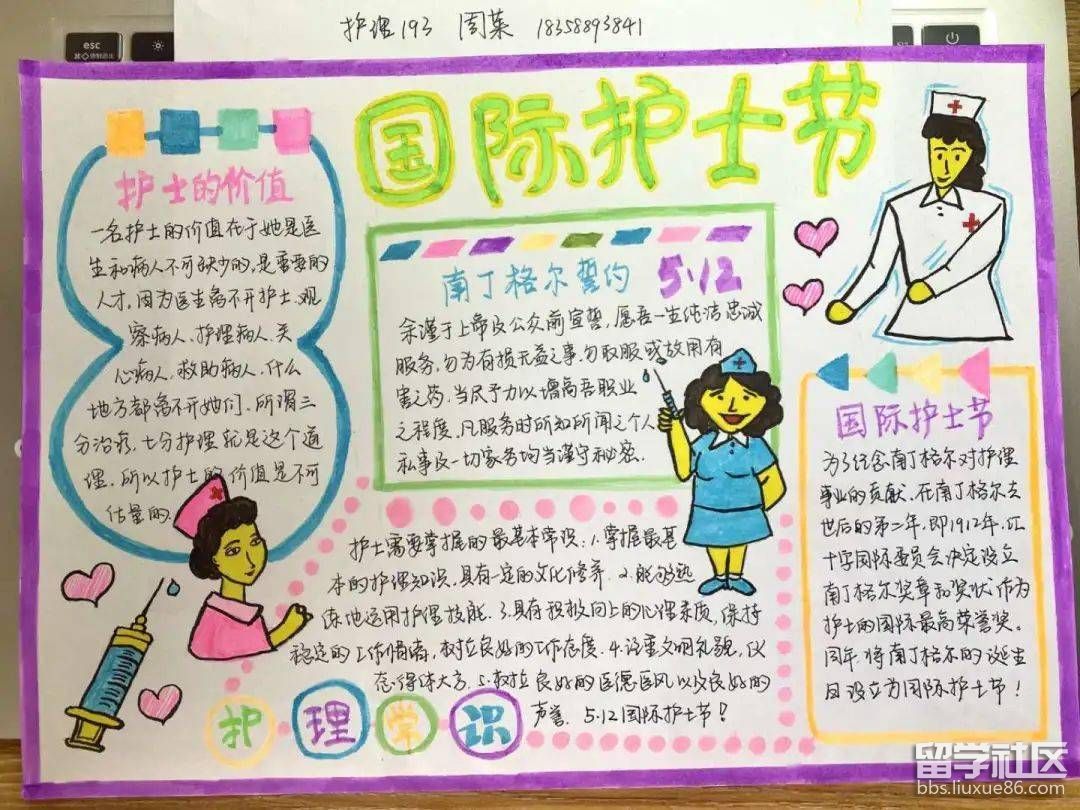 esc
护理193 周菜 18358893841
国际护士节
护士的价值
一名护士的价值在于她是医
生和病人不可缺少的,是需要的
人才,因为医生离不开护士,观
察病人、护理病人、关
心病人,救助病人,什么
地方都离不开她们,所谓三
分治疗,七分护理就是这个道
理,所以护士的价值是不可
估量的.
南丁格尔誓约 5·12
余谨于上帝及公众前宣誓,愿吾一生纯洁忠诚
服务,勿为有损无益之事,勿取服或故用有
害之药,当尽予力以增高吾职业
之程度,凡服务时所知所闻之个人
私事及一切家务均当谨守秘密.
国际护士节
为了纪念南丁格尔对护理
事业的贡献,在南丁格尔去
世后的第二年,即1912年,红
十字国际委员会决定设立
南丁格尔奖章和奖状作为
护士的国际最高荣誉奖。
同年,将南丁格尔的诞生
日设立为国际护士节!
护士需要掌握的最基本常识:1.掌握最基
本的护理知识,具有一定的文化修养.2.能够熟
练地运用护理技能.3.具有积极向上的心理素质,保持
稳定的工作情绪,树立良好的工作态度.4.注重文明礼貌,仪
态得体大方.5.树立良好的医德医风以及良好的
声誉. 5·12国际护士节!
护理学识
留学社区
bbs.liuxue86.com